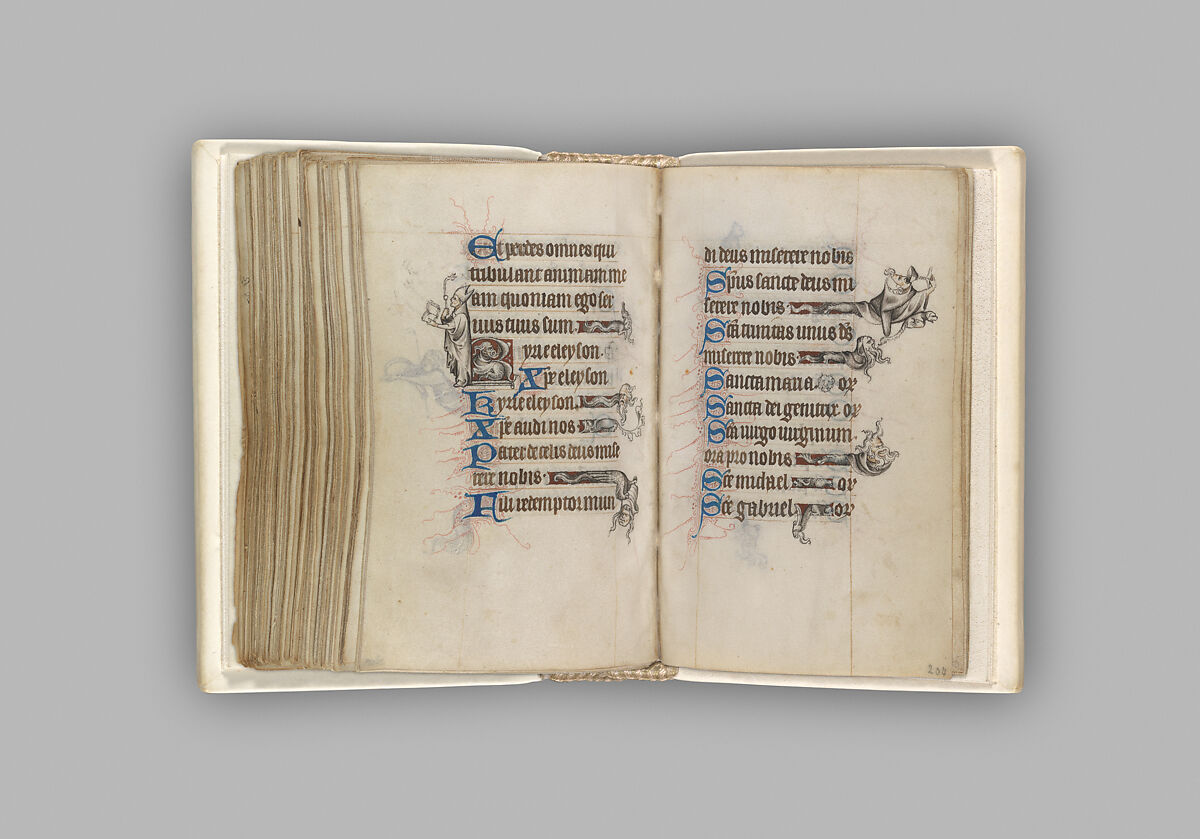 Et perdes omnes qui
tribulant animam me
am quoniam ego ser
uus tuus sum.
Kyrie eleyson.
Xpe eleyson
Kyrie eleyson.
Xpe audi nos
Pater de celis deus mise
rere nobis
Fili redemptor mun
di deus miserere nobis
Spus sancte deus mi
serere nobis
Scā trinitas unus ds
miserere nobis
Sancta maria or
Sancta dei genitrix or
Scā uirgo uirginum.
ora pro nobis
Sce michael or
Sce gabriel or
200